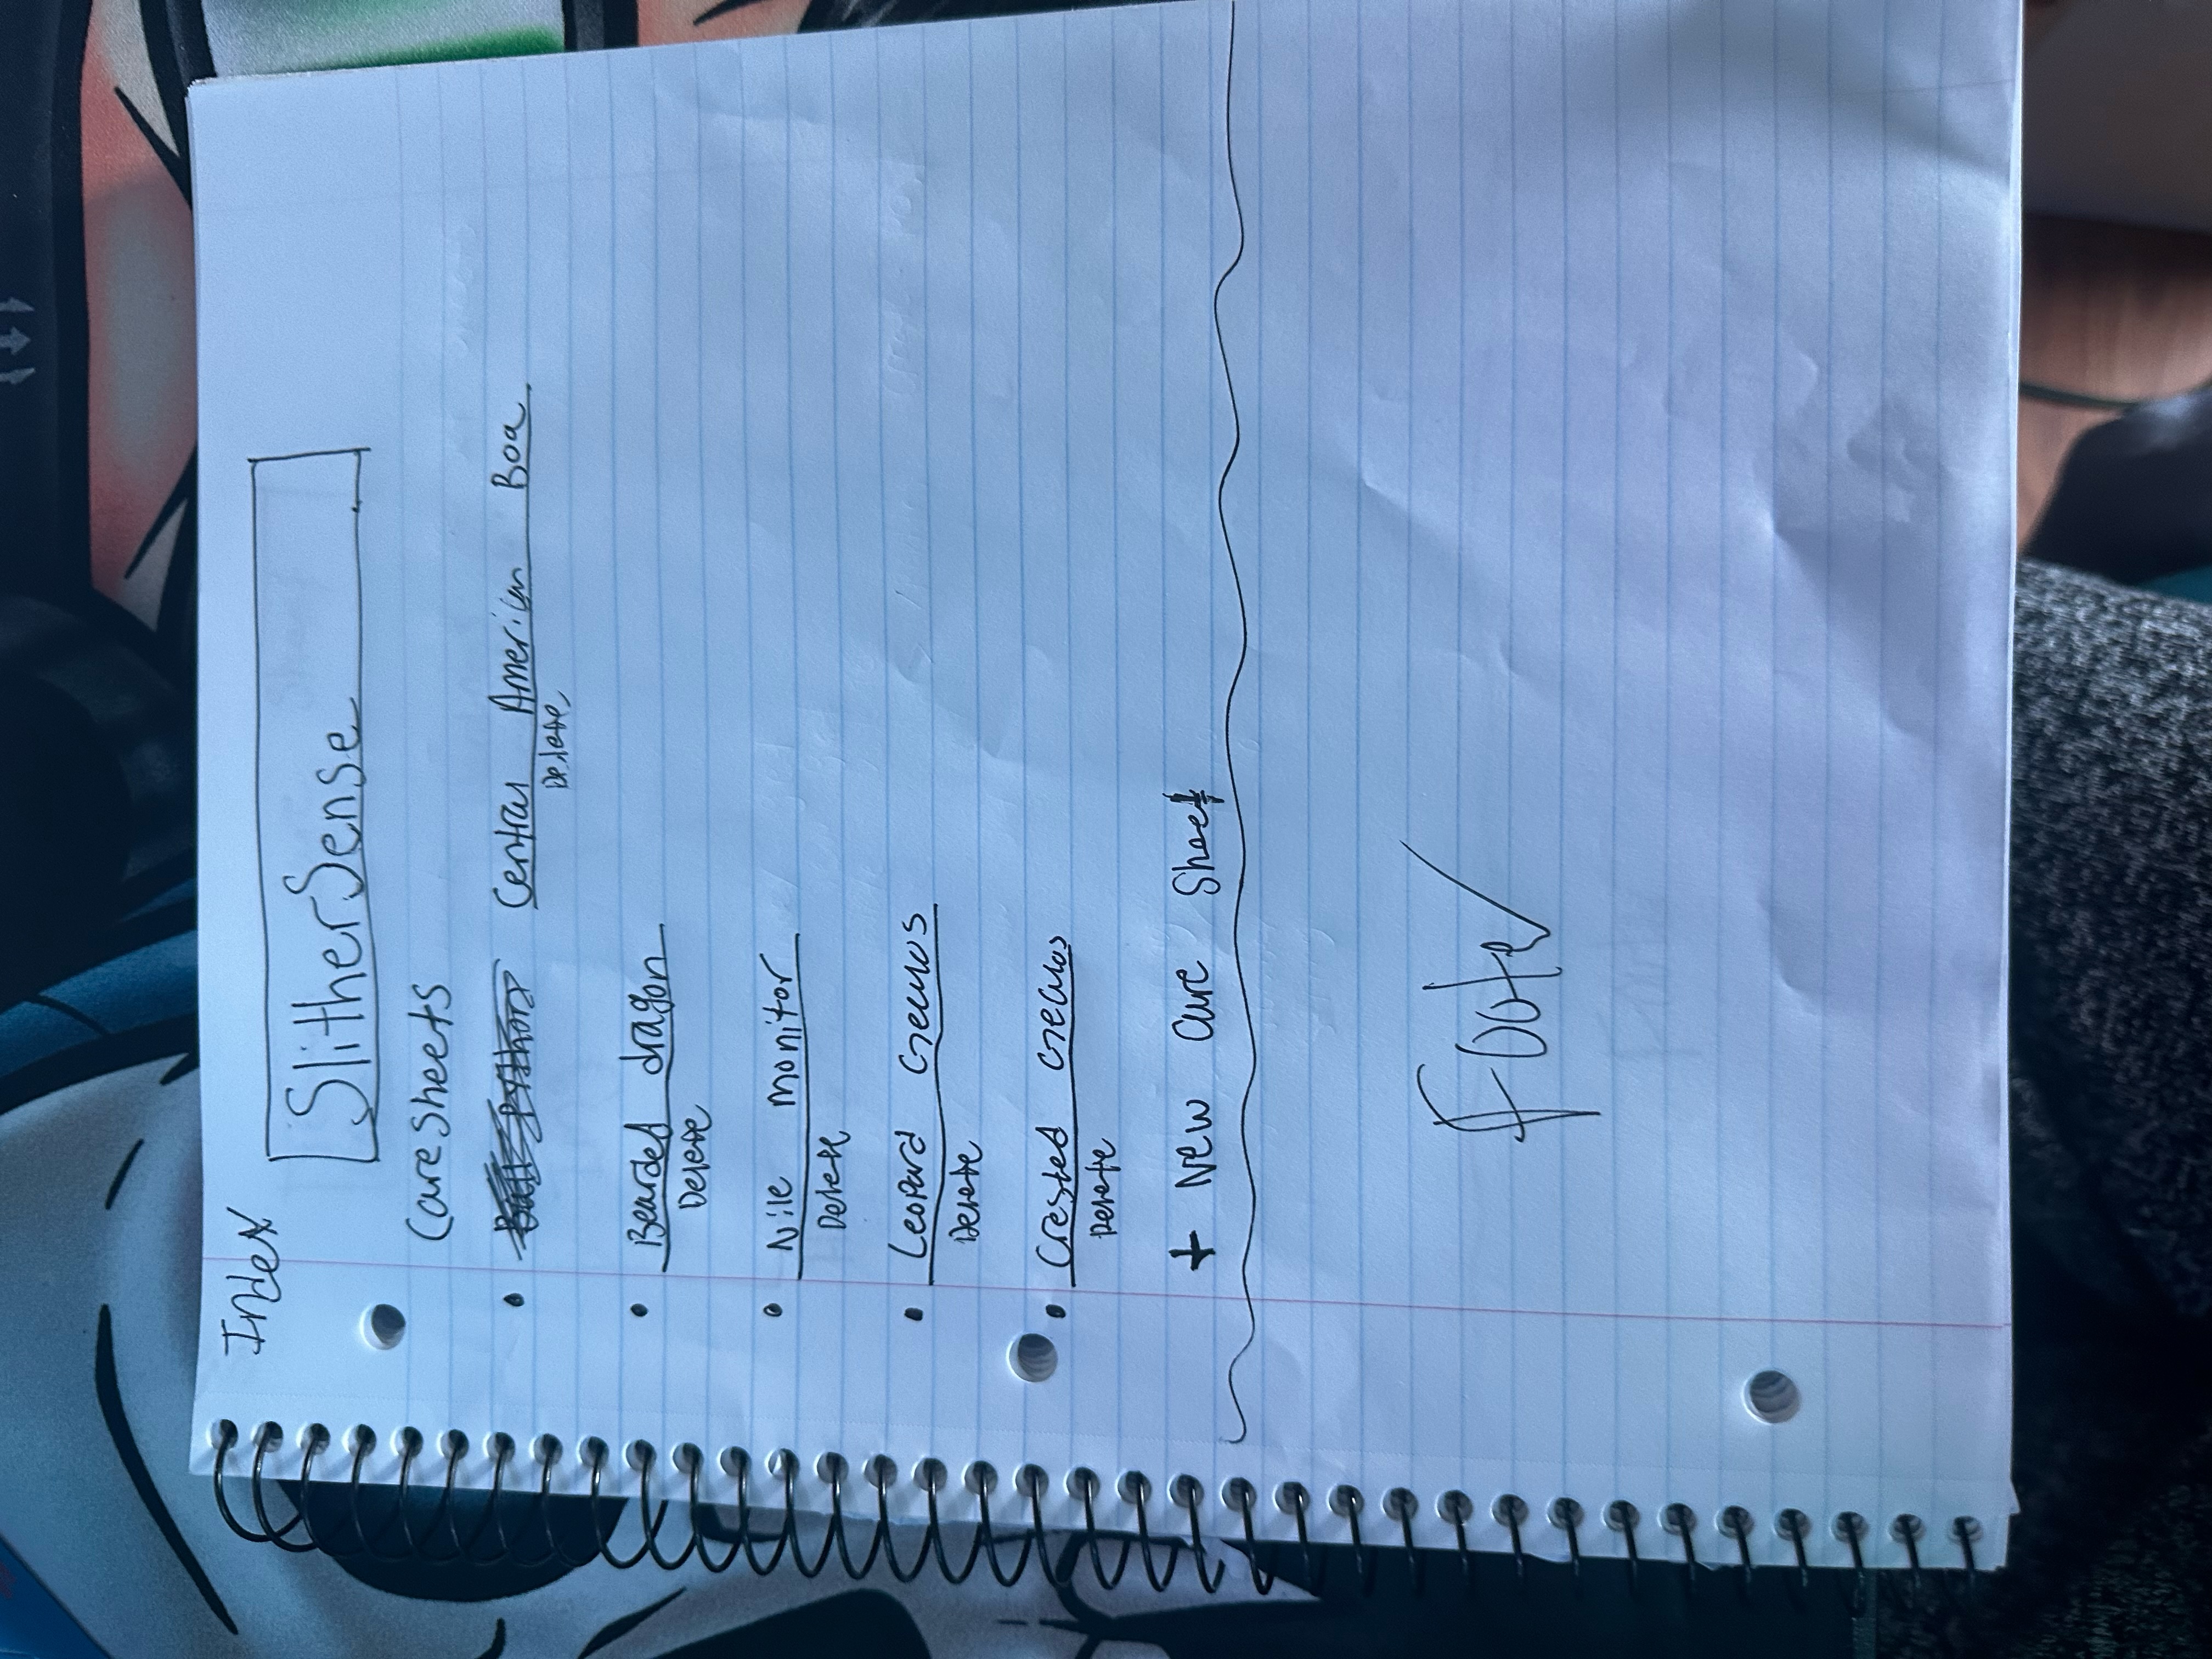 Index
SlitherSense
Caresheets
• Ball Python Central American Boa
Delete
• Bearded dragon
Delete
• Nile monitor
Delete
• Leopard Geckos
Delete
• Crested Geckos
Delete
+ New Care Sheet
Footer